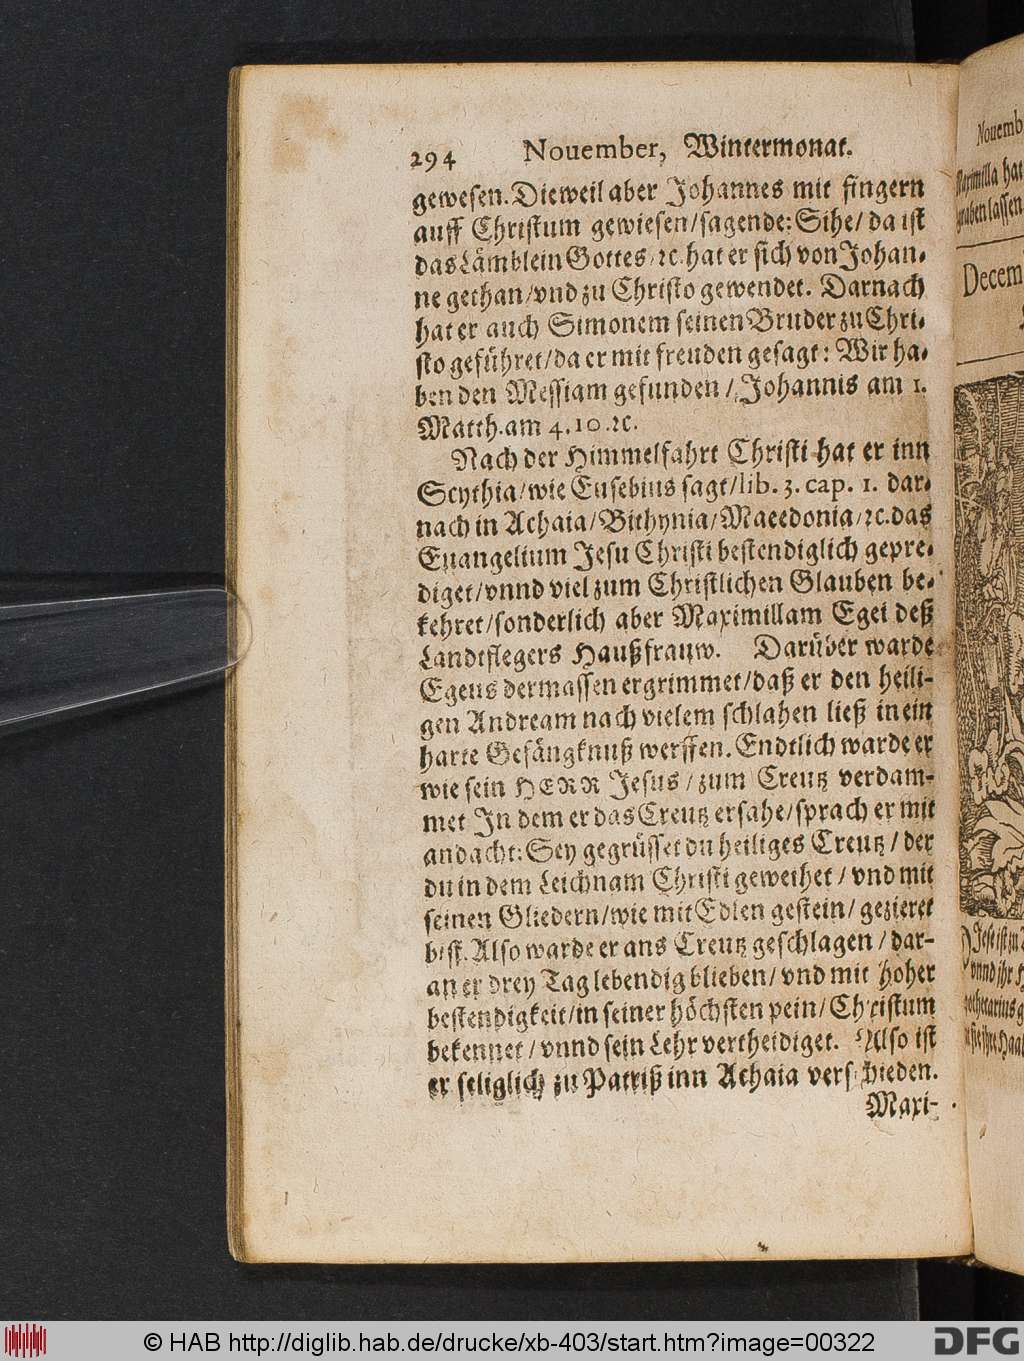 294 Nouember, Wintermonat.
gewesen. Dieweil aber Johannes mit fingern
auff Christum gewiesen/sagende: Sihe/ da ist
das Lämblein Gottes/ ꝛc. hat er sich von Johan-
ne gethan/vnd zu Christo gewendet. Darnach
hat er auch Simonem seinen Bruder zu Chri-
sto geführet/da er mit freuden gesagt: Wir ha-
ben den Messiam gefunden/ Johannis am 1.
Matth. am 4. 10. ꝛc.
Nach der Himmelfahrt Christi hat er inn
Scythia/wie Eusebius sagt/lib. 3. cap. 1. dar-
nach in Achaia/Bithynia/Macedonia/ꝛc. das
Euangelium Jesu Christi bestendiglich gepre-
diget/vnnd viel zum Christlichen Glauben be-
kehret/sonderlich aber Maximillam Egei deß
Landtflegers Haußfrauw. Darüber warde
Egeus dermassen ergrimmet/daß er den heili-
gen Andream nach vielem schlahen ließ in ein
harte Gefängknuß werffen. Endtlich warde er
wie sein HERR Jesus/ zum Creutz verdam-
met In dem er das Creutz ersahe/sprach er mit
andacht: Sey gegrüsset du heiliges Creutz/ der
du in dem Leichnam Christi geweihet/ vnd mit
seinen Gliedern/wie mit Edlen gestein/ gezieret
bist. Also warde er ans Creutz geschlagen/ dar-
an er drey Tag lebendig blieben/ vnd mit hoher
bestendigkeit/in seiner höchsten pein/ Christum
bekennet/ vnnd sein Lehr vertheidiget. Also ist
er seliglich zu Patriß inn Achaia verschieden.
Maxi-
Nouemb
Maximilla hat
graben lassen
Decem
© HAB http://diglib.hab.de/drucke/xb-403/start.htm?image=00322
DFG